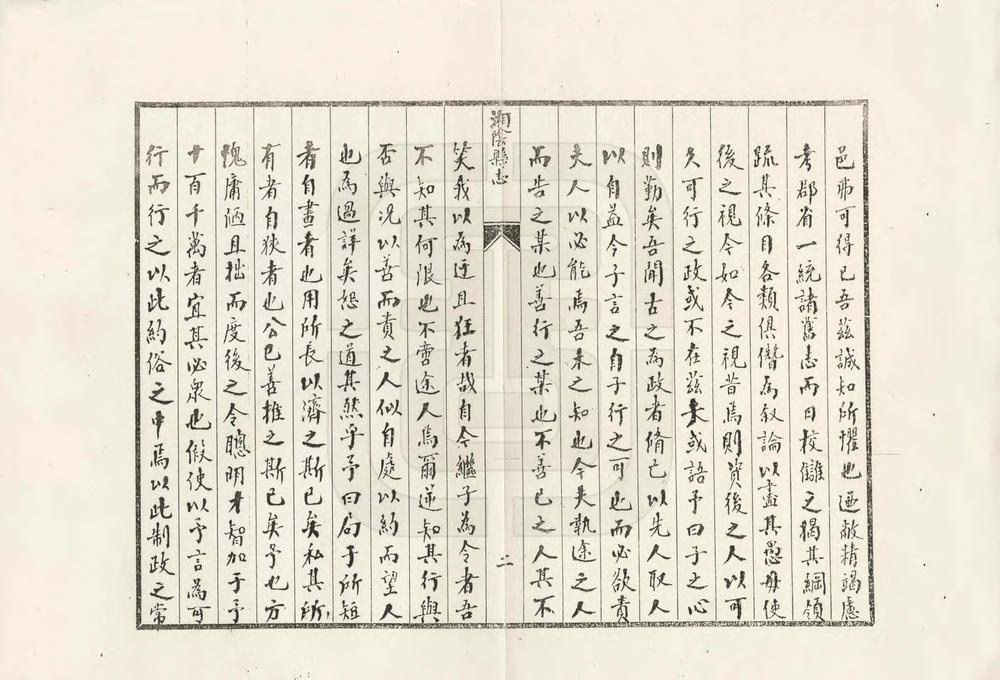 邑弗可得已吾茲誠知所懼也迺敝精竭慮
考郡省一統諸舊志而日校讎之揭其綱領
疏其條目各類俱僭為叙論以盡其愚毋使
後之視今如今之視昔焉則資後之人以可
久可行之政或不在茲未或語予曰子之心
則勤矣吾聞古之為政者脩已以先人取人
以自益今子言之自子行之可也而必欲責
夫人以必能焉吾未之知也今夫執途之人
而告之某也善行之某也不善已之人其不
湘陰縣志
二
笑我以為迂且狂者哉自今繼子為令者吾
不知其何限也不啻途人焉爾逆知其行與
否與况以善而責之人似自處以約而望人
也為過詳矣恕之道其然乎予曰局于所短
者自畫者也用所長以濟之斯已矣私其所
有者自狹者也公已善推之斯已矣予也方
愧庸洒且拙而度後之令聰明才智加于予
十百千萬者宜其必衆也假使以予言為可
行而行之以此約俗之中焉以此制政之常